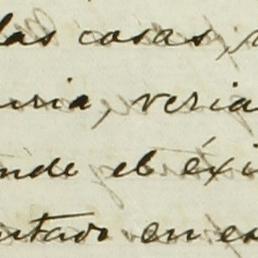 las cosas,
uria, veria
nde el éxi
ntado en es